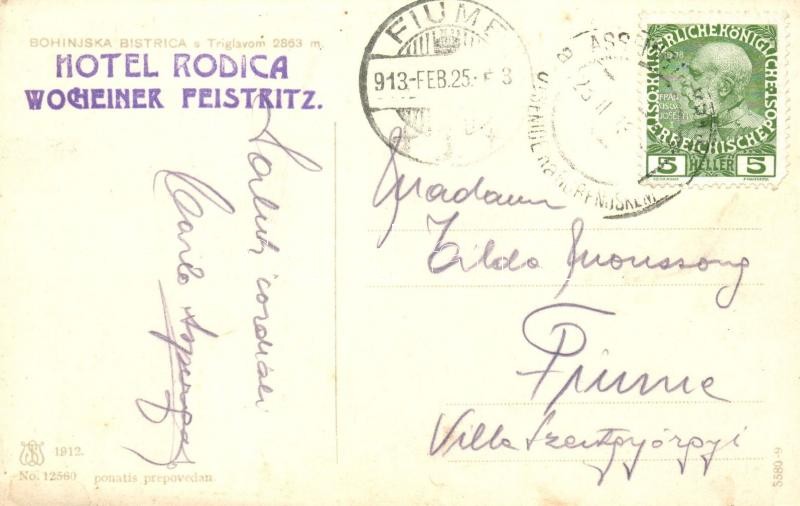 BOHINJSKA BISTRICA s Triglavom 2863 m
HOTEL RODICA
WOCHEINER FEISTRITZ.
Saluti cordiali
Carlo
1912.
No. 12560 ponatis prepovedan.
FIUME
913.-FEB.25.
ASS
KAISERLICHE KÖNIGLICHE ÖSTERREICHISCHE
FRANZ
JOSEF I
5 HELLER 5
Madame
Tilda
Fiume
Villa Szentgyörgyi
5580-9